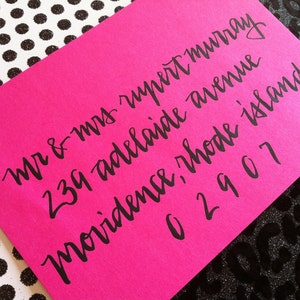 mr & mrs rupert murray
239 adelaide avenue
providence, rhode island
02907